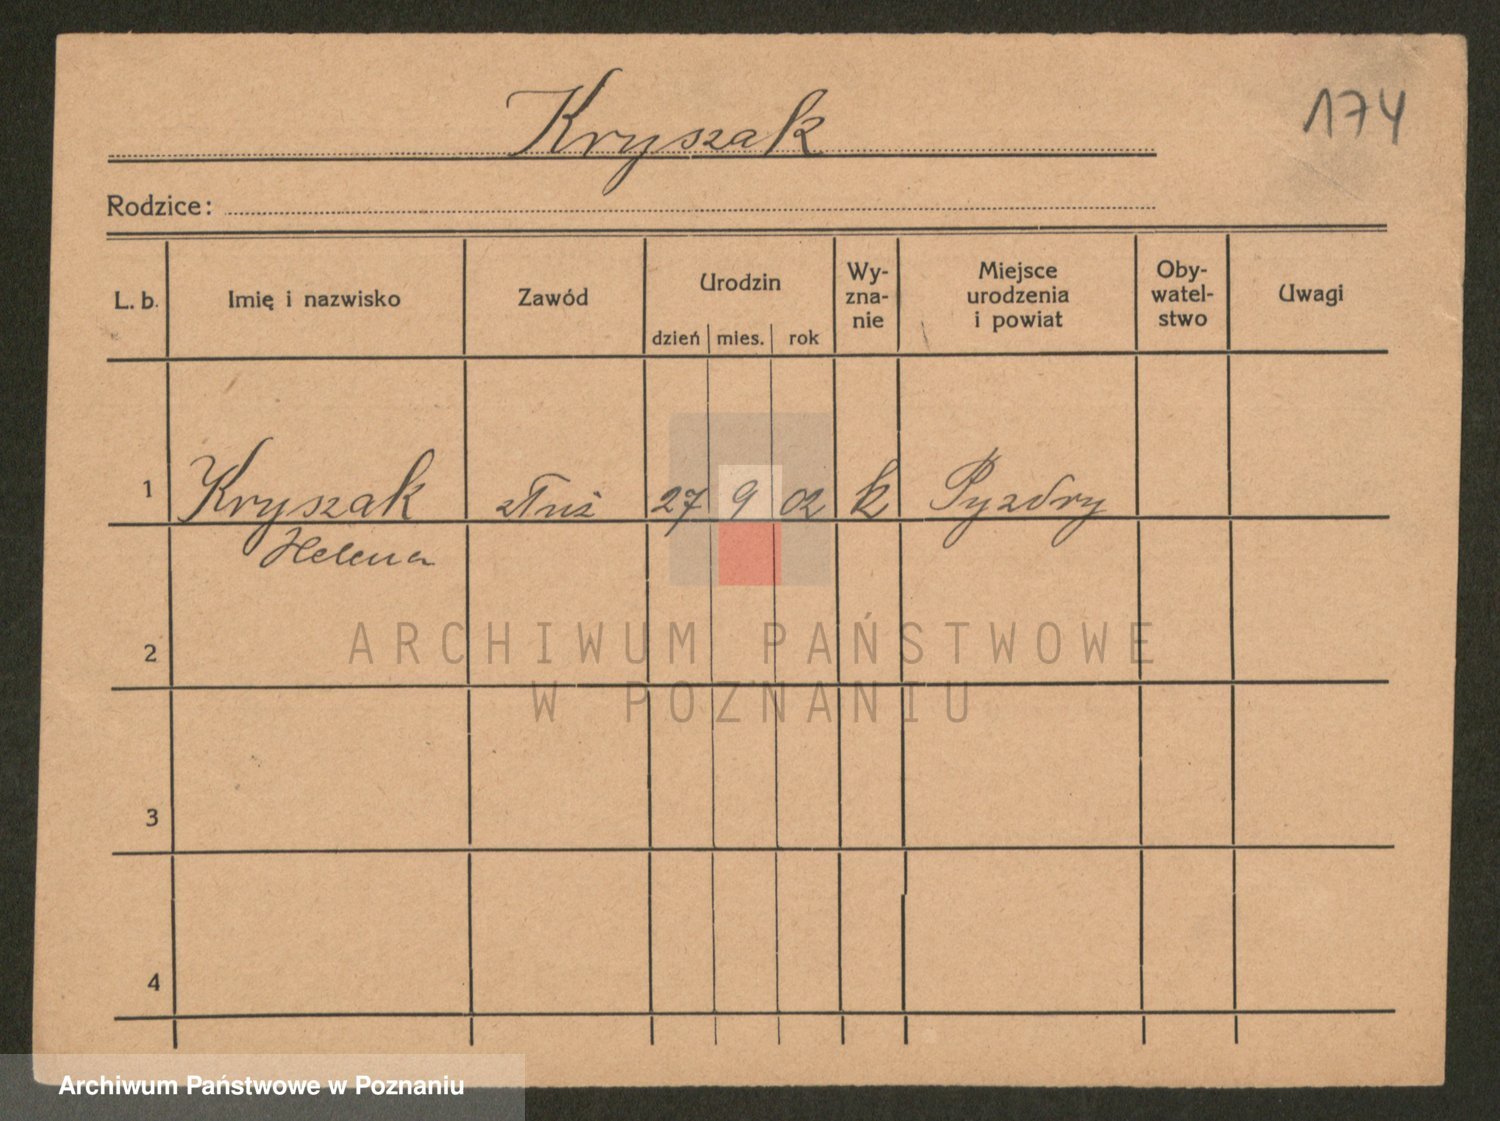 174
Kryszak
Rodzice:
L. b. Imię i nazwisko Zawód Urodzin dzień mies. rok Wy-zna-nie Miejsce urodzenia i powiat Oby-watel-stwo Uwagi
1 Kryszak 27 9 02 k Pyzdry
Helena
2
ARCHIWUM PAŃSTWOWE
W POZNANIU
3
4
Archiwum Państwowe w Poznaniu